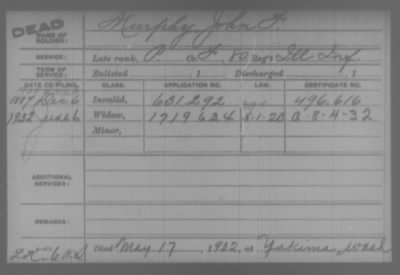 DEAD
Murphy, John F.
NAME OF SOLDIER:
SERVICE: Late rank, P. Co. F, 80 Reg't Ill Inf.
TERM OF SERVICE: Enlisted , 1 Discharged , 1
DATE OF FILING. CLASS. APPLICATION NO. LAW. CERTIFICATE NO.
1887 Dec 6 Invalid, 631.292 496.616
1932 June 6 Widow, 1719634 5-1-20 A-8-4-32
Minor,
ADDITIONAL SERVICES:
REMARKS:
Died May 17, 1932, at Yakima, Wash